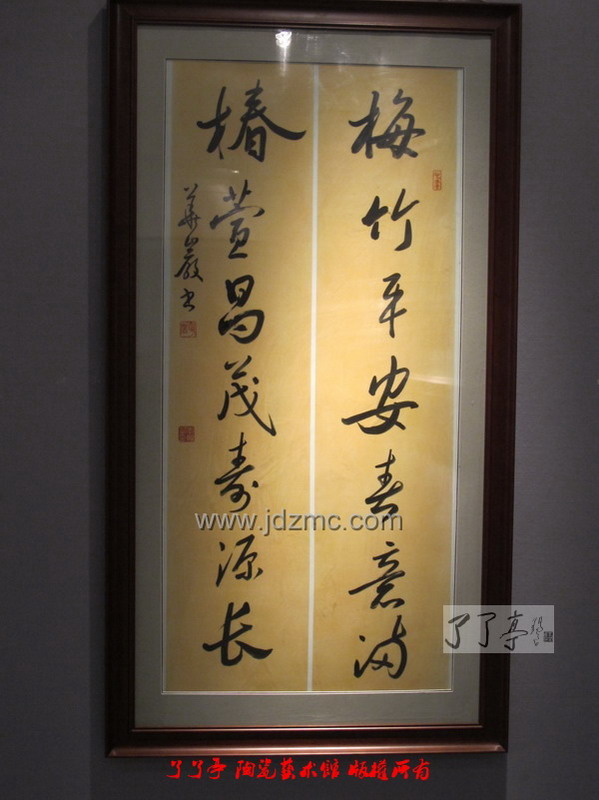 梅竹平安春意满
椿萱昌茂寿源长
華嚴书
www.jdzmc.com
了了亭
了了亭 陶瓷藝术館 版權所有